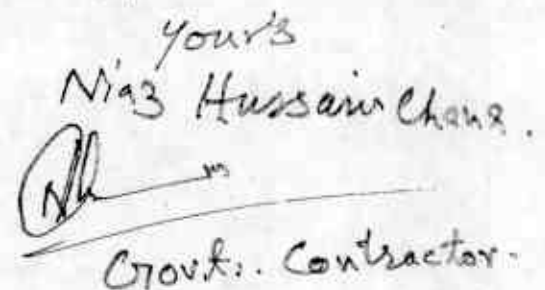 Your's
Niaz Hussain Chana.
Govt:. Contractor.